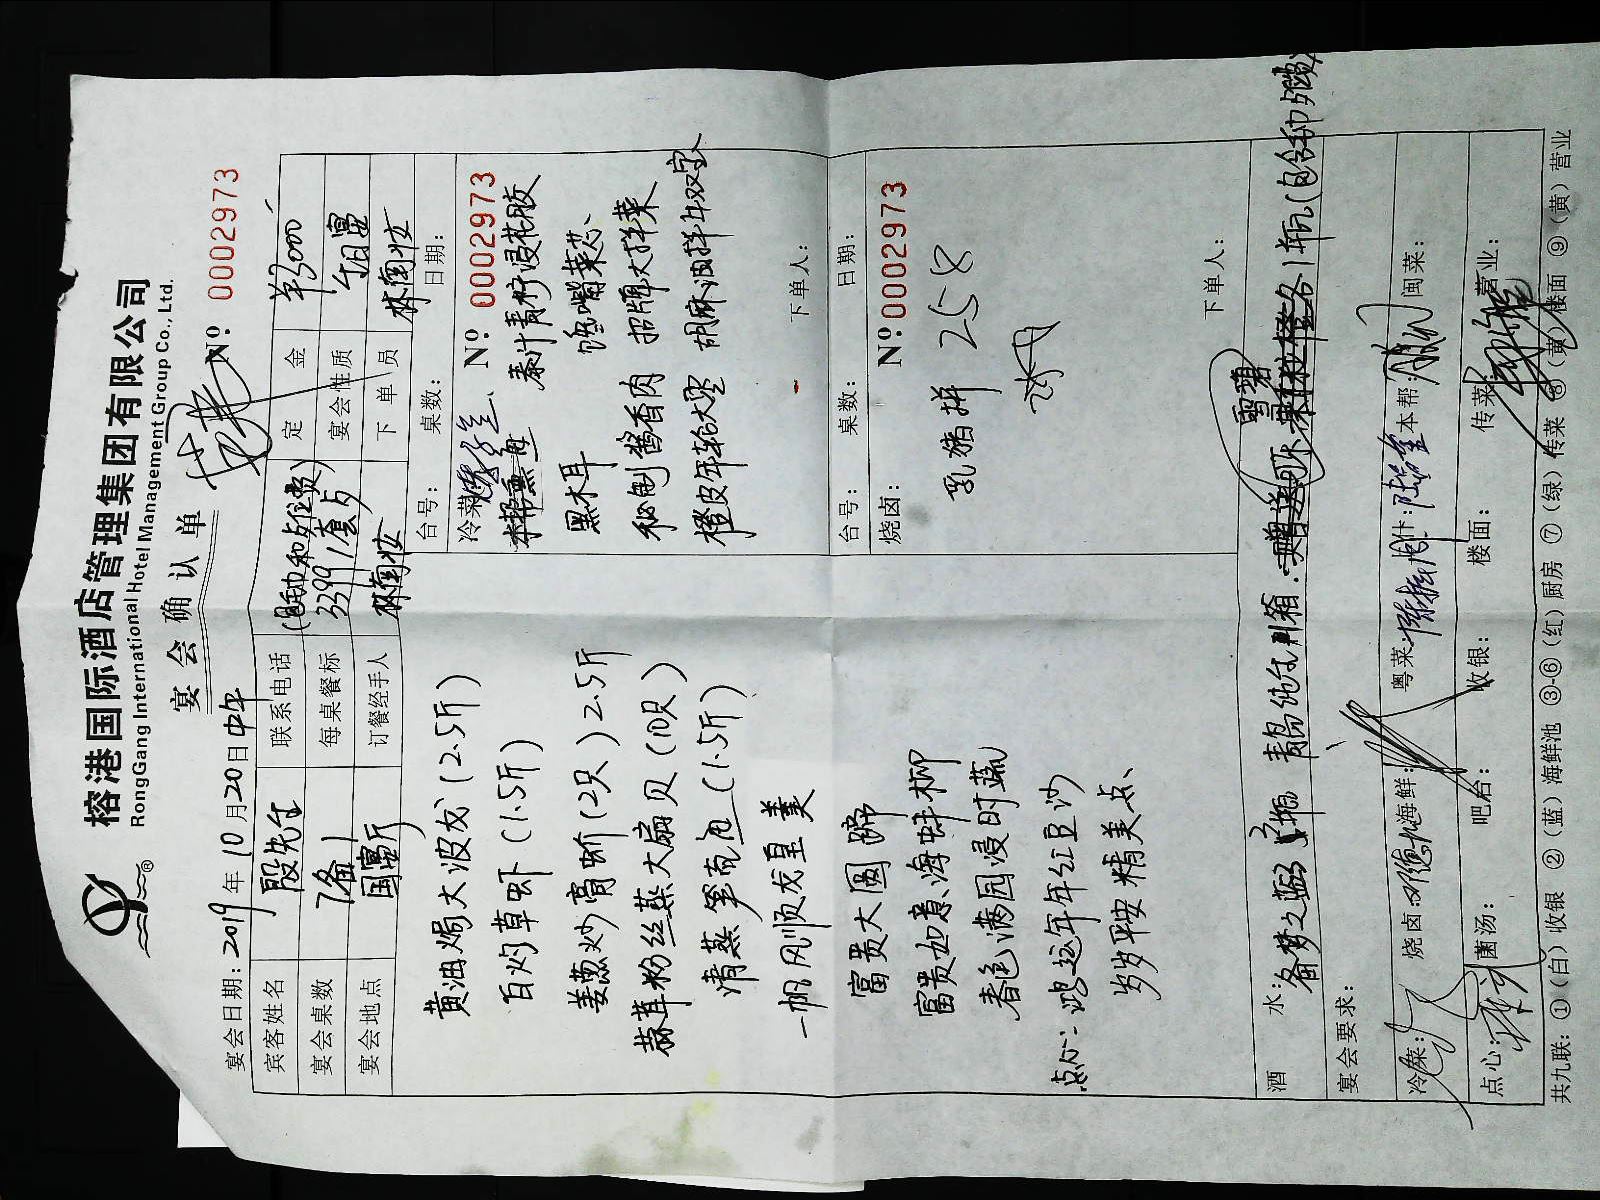 榕港国际酒店管理集团有限公司
RongGang International Hotel Management Group Co., Ltd.
宴会确认单
№: 0002973
宴会日期: 2019 年 10 月 20 日 中午
宾客姓名 殷先生 联系电话 定金 ¥3000
宴会桌数 7备1 每桌餐标 3399/套 宴会性质
宴会地点 国富厅 订餐经手人 林南妆 下单员 林南妆
黄油焗大波龙(2.5斤)
白灼草虾(1.5斤)
姜葱炒膏蚧(2只)2.5斤
蒜茸粉丝蒸大扇贝(10只)
清蒸笋壳鱼(1.5斤)
一帆风顺龙皇羹
富贵大圆蹄
富贵如意海蚌柳
春色满园浸时蔬
点心: 鸿运年年红豆沙
岁岁平安精美点
台号: 桌数: 日期:
冷菜 № 0002973
本帮熏鱼 泰汁青柠浸花胶
黑木耳 鸡嘴菜芯
秘制酱香肉 招牌大拌菜
橙皮年轮大枣 胡麻油拌双宝
下单人:
台号: 桌数: 日期:
烧卤: №:0002973
乳猪拼 258
下单人:
酒水: 备梦之蓝 3瓶 青岛纯生1箱. 雪碧 各1瓶
宴会要求:
冷菜: 烧卤 海鲜: 粤菜 本帮: 闽菜:
点心: 菌汤: 吧台: 收银: 楼面: 传菜: 营业:
共九联: ①(白)收银 ②(蓝)海鲜池 ③-⑥(红)厨房 ⑦(绿)传菜 ⑧(黄)楼面 ⑨(黄)营业